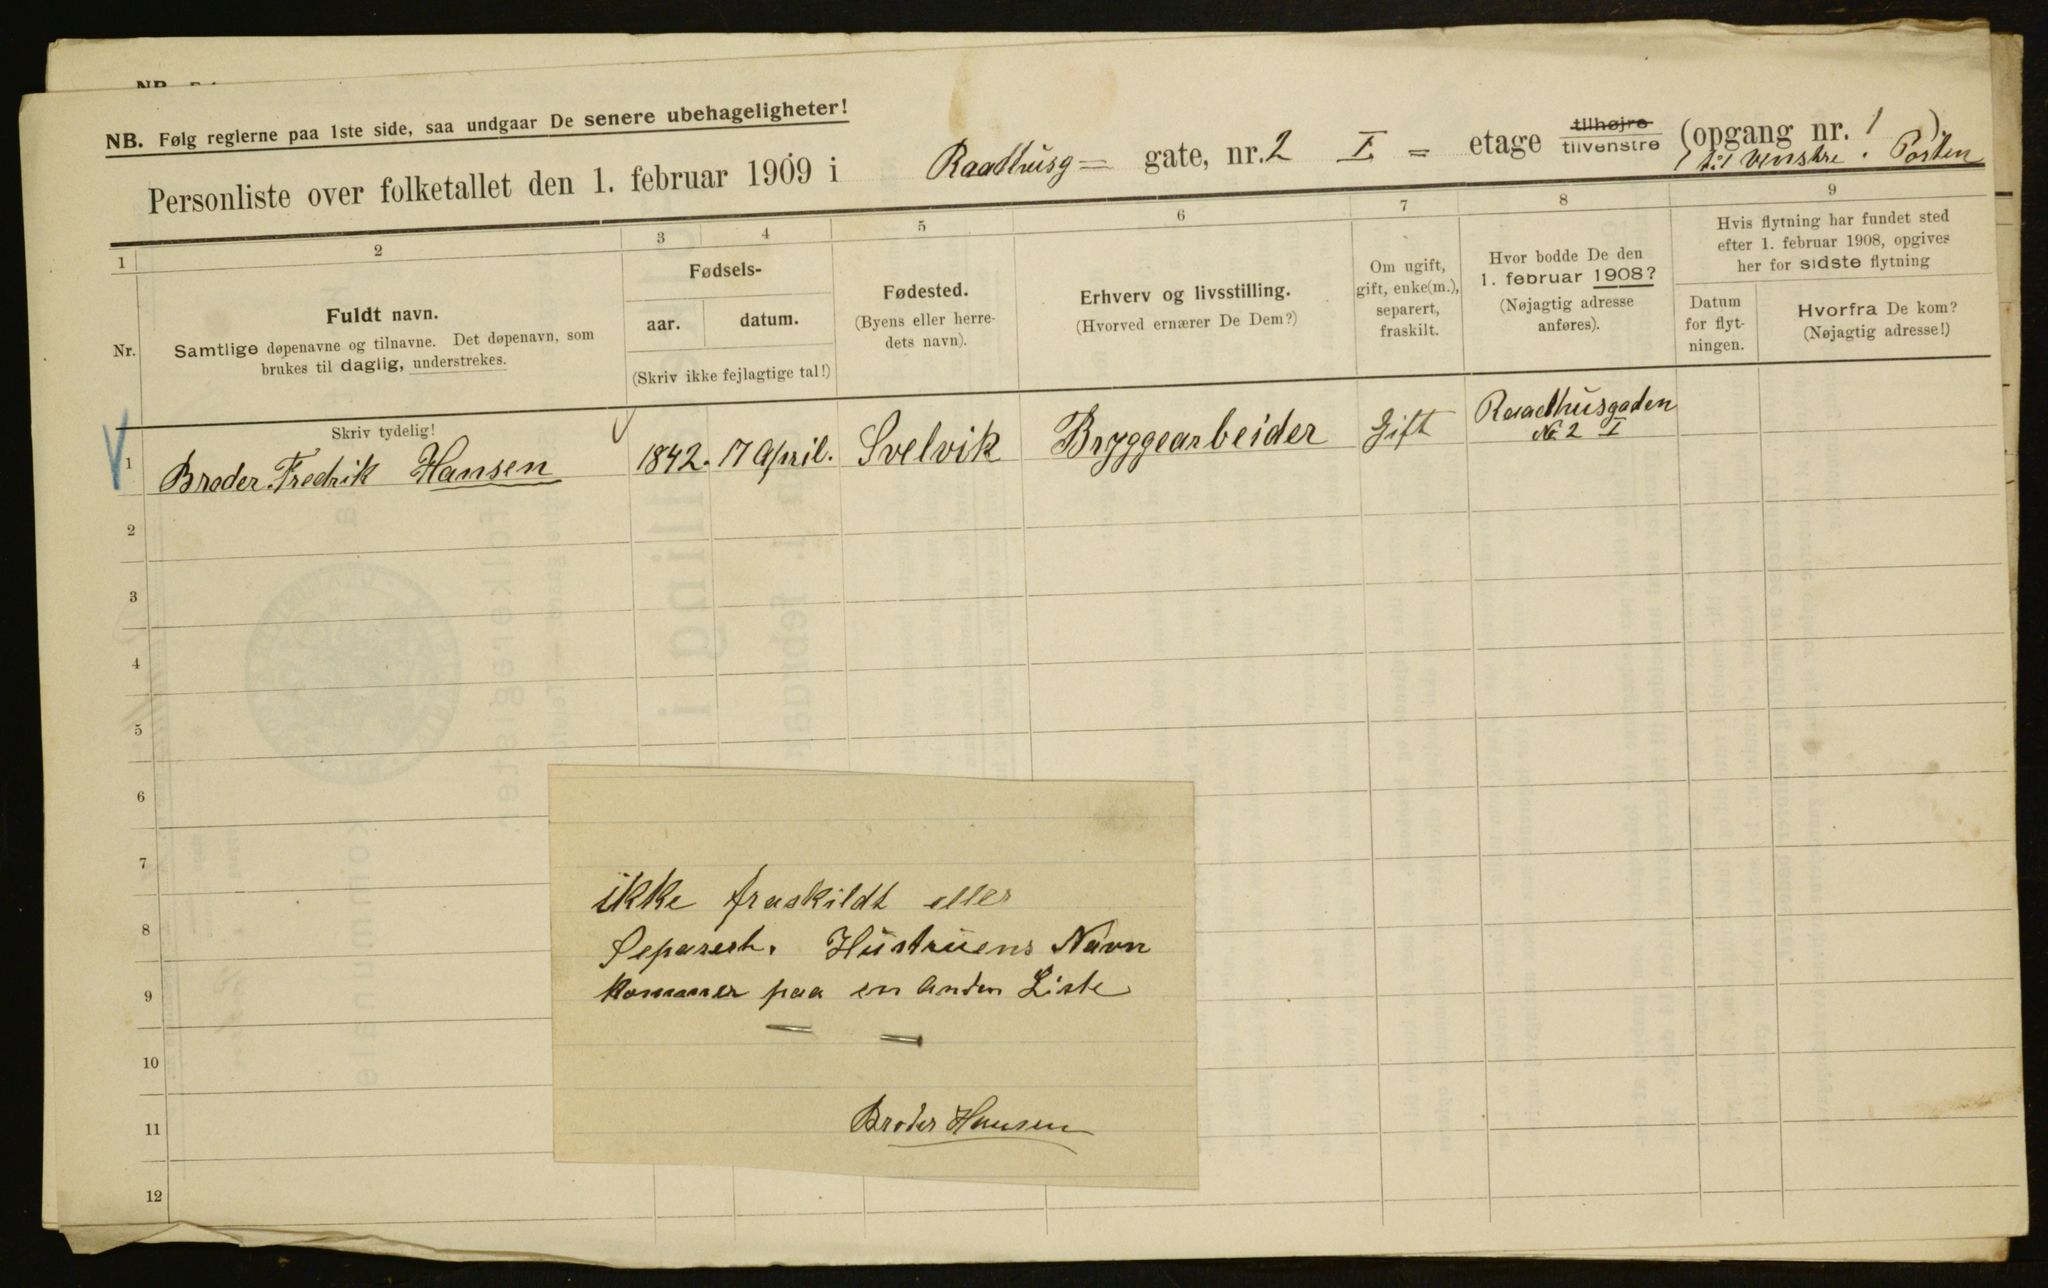 NB. Følg reglerne paa 1ste side, saa undgaar De senere ubehageligheter!
Personliste over folketallet den 1. februar 1909 i Raadhusg= gate, nr. 2 I = etage tilhøjre tilvenstre (opgang nr. 1 )
til venstre i Porten
1 2 3 4 5 6 7 8 9
Nr.
Fuldt navn.
Samtlige døpenavne og tilnavne. Det døpenavn, som
brukes til daglig, understrekes.
Skriv tydelig!
Fødsels-
aar. datum.
(Skriv ikke fejlagtige tal!)
Fødested.
(Byens eller herre-
dets navn).
Erhverv og livsstilling.
(Hvorved ernærer De Dem?)
Om ugift,
gift, enke(m.),
separert,
fraskilt.
Hvor bodde De den
1. februar 1908?
(Nøjagtig adresse
anføres).
Hvis flytning har fundet sted
efter 1. februar 1908, opgives
her for sidste flytning
Datum
for flyt-
ningen.
Hvorfra De kom?
(Nøjagtig adresse!)
1 Broder Fredrik Hansen 1842. 17 April. Svelvik Bryggearbeider Gift Raadhusgaden
No 2 I
2
3
4
5
6
7
8
9
10
11
12
ikke fraskildt eller
Separert. Hustruens Navn
kommer paa en anden Liste
Broder Hansen